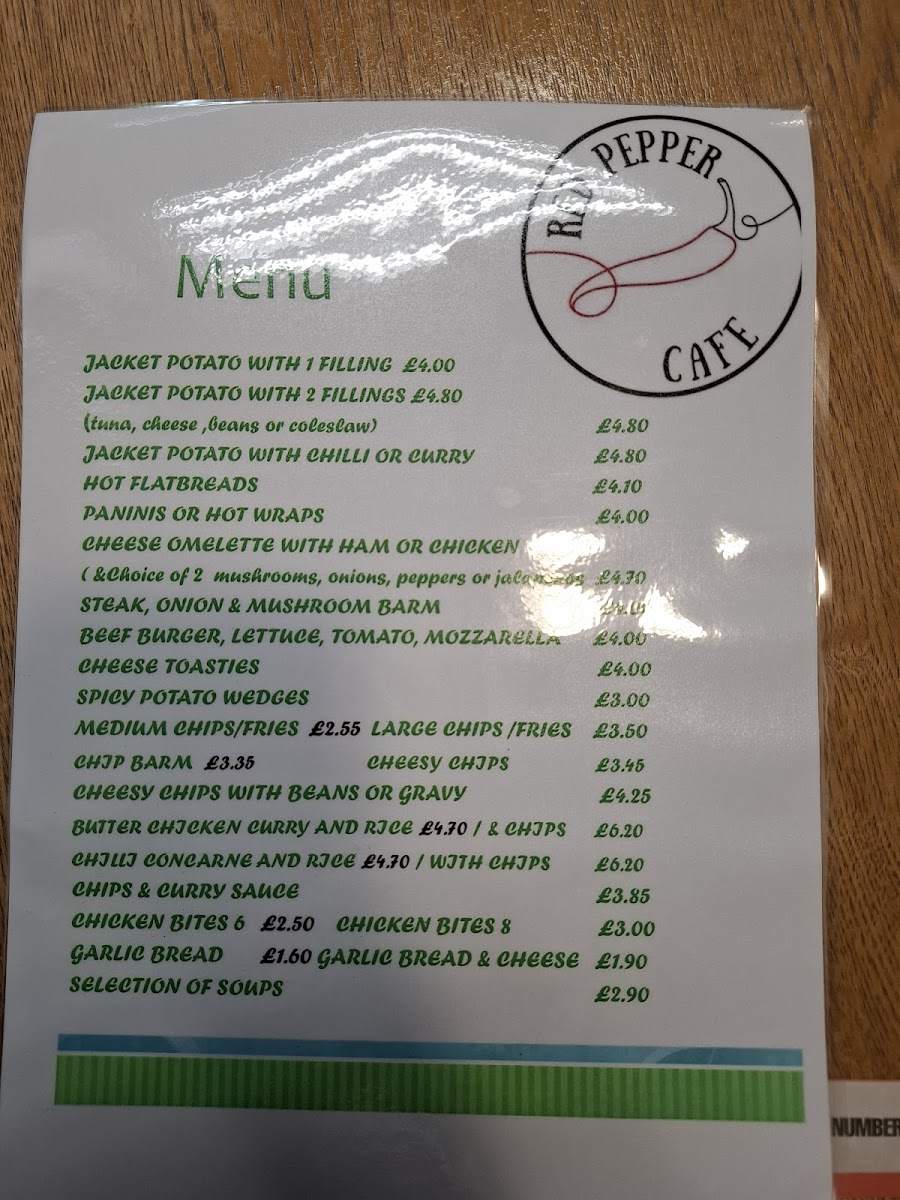 RED PEPPER
CAFE
Menu
JACKET POTATO WITH 1 FILLING £4.00
JACKET POTATO WITH 2 FILLINGS £4.80
(tuna, cheese ,beans or coleslaw) £4.80
JACKET POTATO WITH CHILLI OR CURRY £4.80
HOT FLATBREADS £4.10
PANINIS OR HOT WRAPS £4.00
CHEESE OMELETTE WITH HAM OR CHICKEN
( &Choice of 2 mushrooms, onions, peppers or £4.70
STEAK, ONION & MUSHROOM BARM
BEEF BURGER, LETTUCE, TOMATO, MOZZARELLA £4.00
CHEESE TOASTIES £4.00
SPICY POTATO WEDGES £3.00
MEDIUM CHIPS/FRIES £2.55 LARGE CHIPS /FRIES £3.50
CHIP BARM £3.35 CHEESY CHIPS £3.45
CHEESY CHIPS WITH BEANS OR GRAVY £4.25
BUTTER CHICKEN CURRY AND RICE £4.70 / & CHIPS £6.20
CHILLI CONCARNE AND RICE £4.70 / WITH CHIPS £6.20
CHIPS & CURRY SAUCE £3.85
CHICKEN BITES 6 £2.50 CHICKEN BITES 8 £3.00
GARLIC BREAD £1.60 GARLIC BREAD & CHEESE £1.90
SELECTION OF SOUPS £2.90
NUMBER